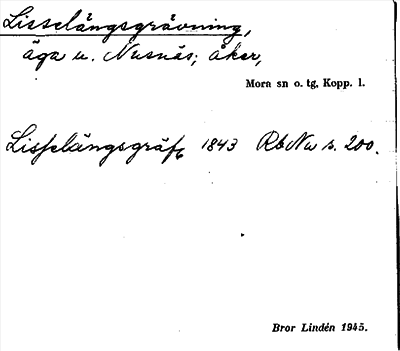 Lisselängsgrävning,
äga u. Nusnäs; åker,
Mora sn o. tg, Kopp. l.
Lisselängsgräfg 1843 RbNu s. 200.
Bror Lindén 1945.